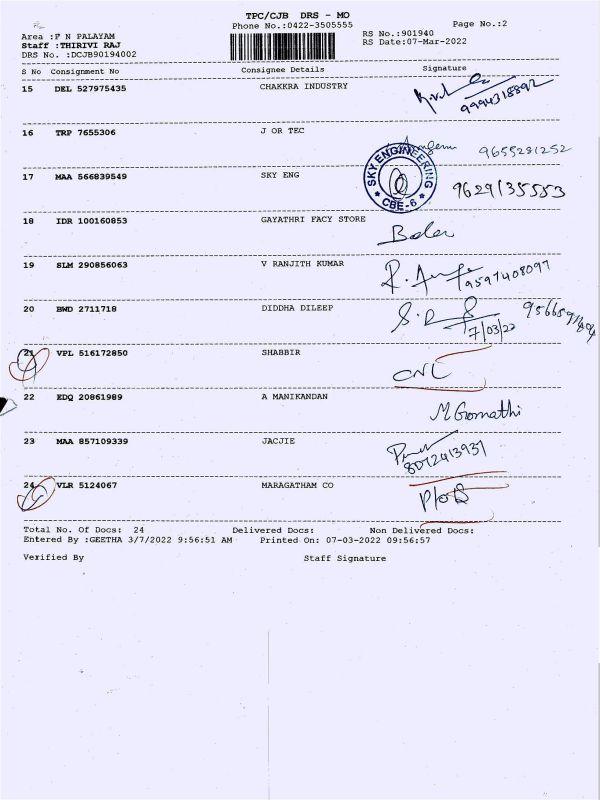 TPC/CJB DRS - MO
Phone No.:0422-3505555
Page No.:2
Area :P N PALAYAM
Staff :THIRIVI RAJ
DRS No. :DCJB90194002
RS No.:901940
RS Date:07-Mar-2022
S No Consignment No Consignee Details Signature
15 DEL 527975435 CHAKKRA INDUSTRY
9994318892
16 TRP 7655306 J OR TEC
9655281252
17 MAA 566839549 SKY ENG
SKY ENGINEERING
CBE-6
9629135553
18 IDR 100160853 GAYATHRI FACY STORE
19 SLM 290856063 V RANJITH KUMAR
9597408097
20 BWD 2711718 DIDDHA DILEEP
7/03/22
21 VPL 516172850 SHABBIR
CNL
22 EDQ 20861989 A MANIKANDAN
M Gomathi
23 MAA 857109339 JACJIE
8072413937
24 VLR 5124067 MARAGATHAM CO
Total No. Of Docs: 24 Delivered Docs: Non Delivered Docs:
Entered By :GEETHA 3/7/2022 9:56:51 AM Printed On: 07-03-2022 09:56:57
Verified By Staff Signature